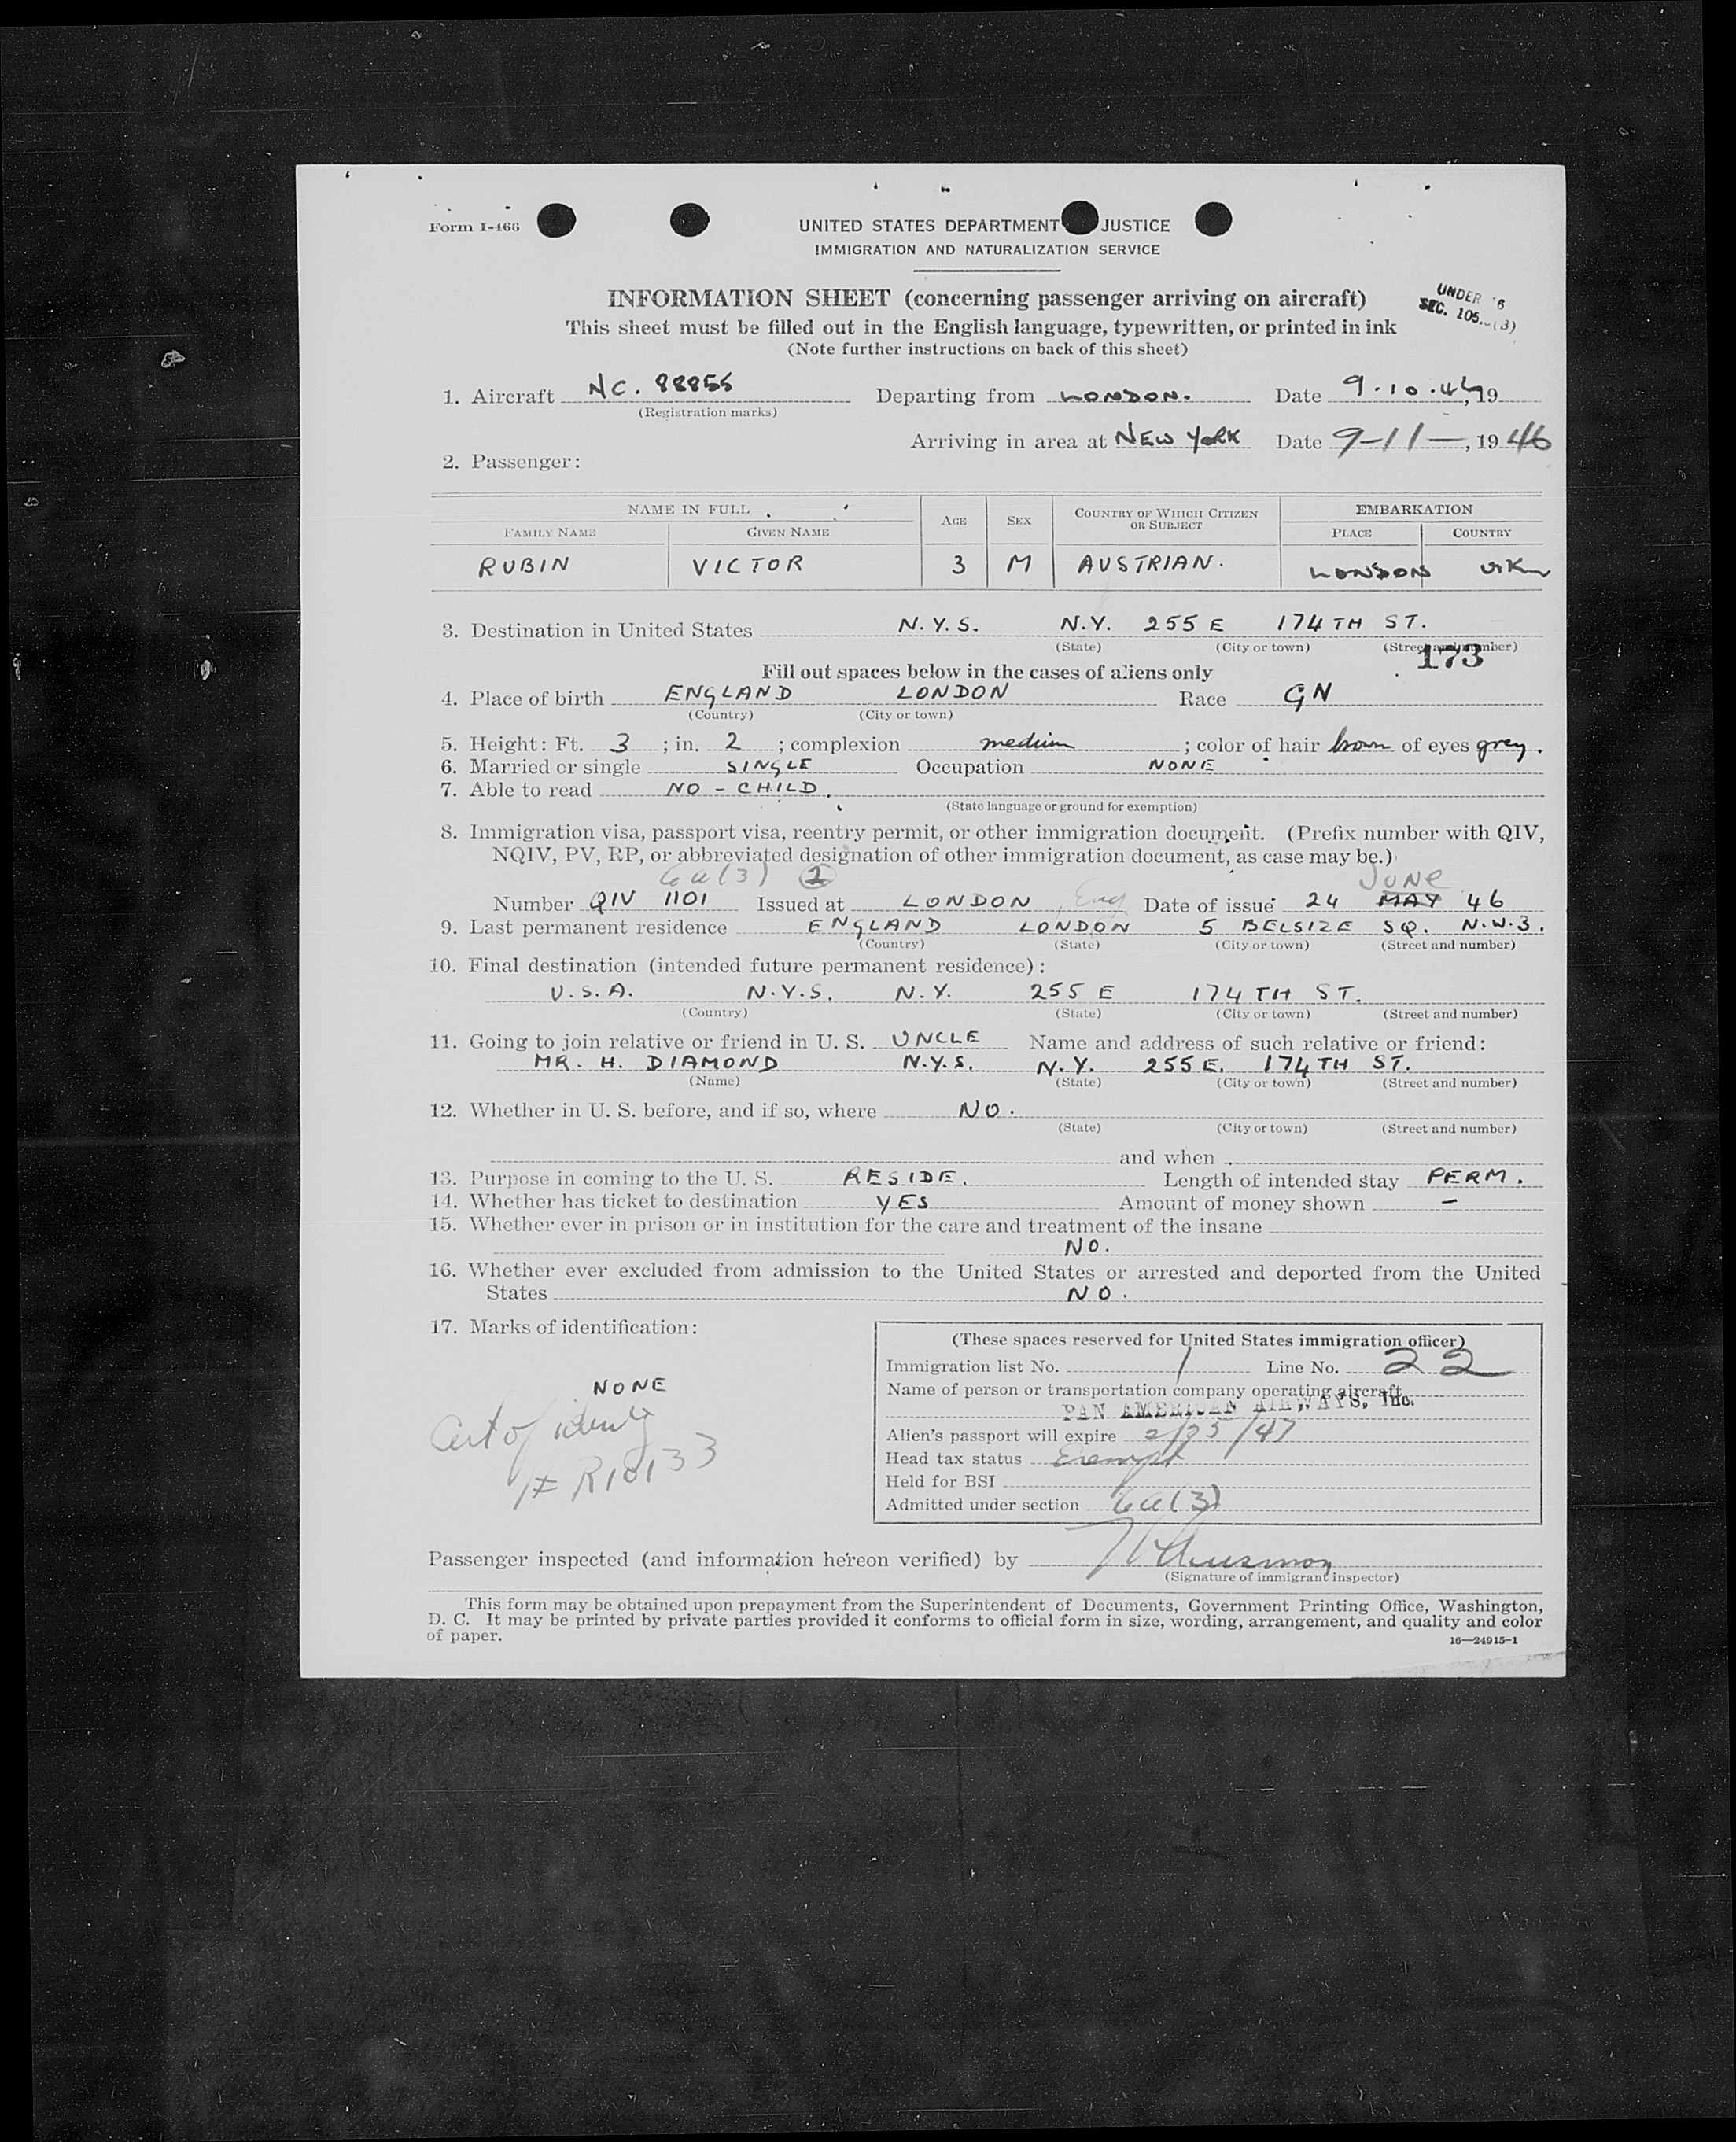 Form I-466
UNITED STATES DEPARTMENT JUSTICE
IMMIGRATION AND NATURALIZATION SERVICE
INFORMATION SHEET (concerning passenger arriving on aircraft)
UNDER 16
SEC. 105. (3)
This sheet must be filled out in the English language, typewritten, or printed in ink
(Note further instructions on back of this sheet)
1. Aircraft NC. 88855 Departing from LONDON. Date 9.10.46, 19
(Registration marks)
Arriving in area at NEW YORK Date 9-11-, 1946
2. Passenger:
NAME IN FULL AGE SEX COUNTRY OF WHICH CITIZEN OR SUBJECT EMBARKATION
FAMILY NAME GIVEN NAME PLACE COUNTRY
RUBIN VICTOR 3 M AUSTRIAN. LONDON UK
3. Destination in United States N.Y.S. N.Y. 255 E 174TH ST.
(State) (City or town) (Street and number)
173
Fill out spaces below in the cases of aliens only
4. Place of birth ENGLAND LONDON Race GN
(Country) (City or town)
5. Height: Ft. 3 ; in. 2 ; complexion medium ; color of hair brown of eyes grey.
6. Married or single SINGLE Occupation NONE
7. Able to read NO - CHILD.
(State language or ground for exemption)
8. Immigration visa, passport visa, reentry permit, or other immigration document. (Prefix number with QIV,
NQIV, PV, RP, or abbreviated designation of other immigration document, as case may be.)
6a(3) 2 JUNE
Number QIV 1101 Issued at LONDON, Eng Date of issue 24 MAY 46
9. Last permanent residence ENGLAND LONDON 5 BELSIZE SQ. N.W.3.
(Country) (State) (City or town) (Street and number)
10. Final destination (intended future permanent residence):
U.S.A. N.Y.S. N.Y. 255 E 174TH ST.
(Country) (State) (City or town) (Street and number)
11. Going to join relative or friend in U. S. UNCLE Name and address of such relative or friend:
MR. H. DIAMOND N.Y.S. N.Y. 255 E. 174TH ST.
(Name) (State) (City or town) (Street and number)
12. Whether in U. S. before, and if so, where NO.
(State) (City or town) (Street and number)
and when
13. Purpose in coming to the U. S. RESIDE. Length of intended stay PERM.
14. Whether has ticket to destination YES Amount of money shown -
15. Whether ever in prison or in institution for the care and treatment of the insane
NO.
16. Whether ever excluded from admission to the United States or arrested and deported from the United
States NO.
17. Marks of identification:
NONE
Cert of identy
# R10133
(These spaces reserved for United States immigration officer)
Immigration list No. 1 Line No. 22
Name of person or transportation company operating aircraft
PAN AMERICAN AIRWAYS, Inc.
Alien's passport will expire 2/25/47
Head tax status Exempt
Held for BSI
Admitted under section 6a(3)
Passenger inspected (and information hereon verified) by
(Signature of immigrant inspector)
This form may be obtained upon prepayment from the Superintendent of Documents, Government Printing Office, Washington,
D. C. It may be printed by private parties provided it conforms to official form in size, wording, arrangement, and quality and color
of paper.
16—24915-1